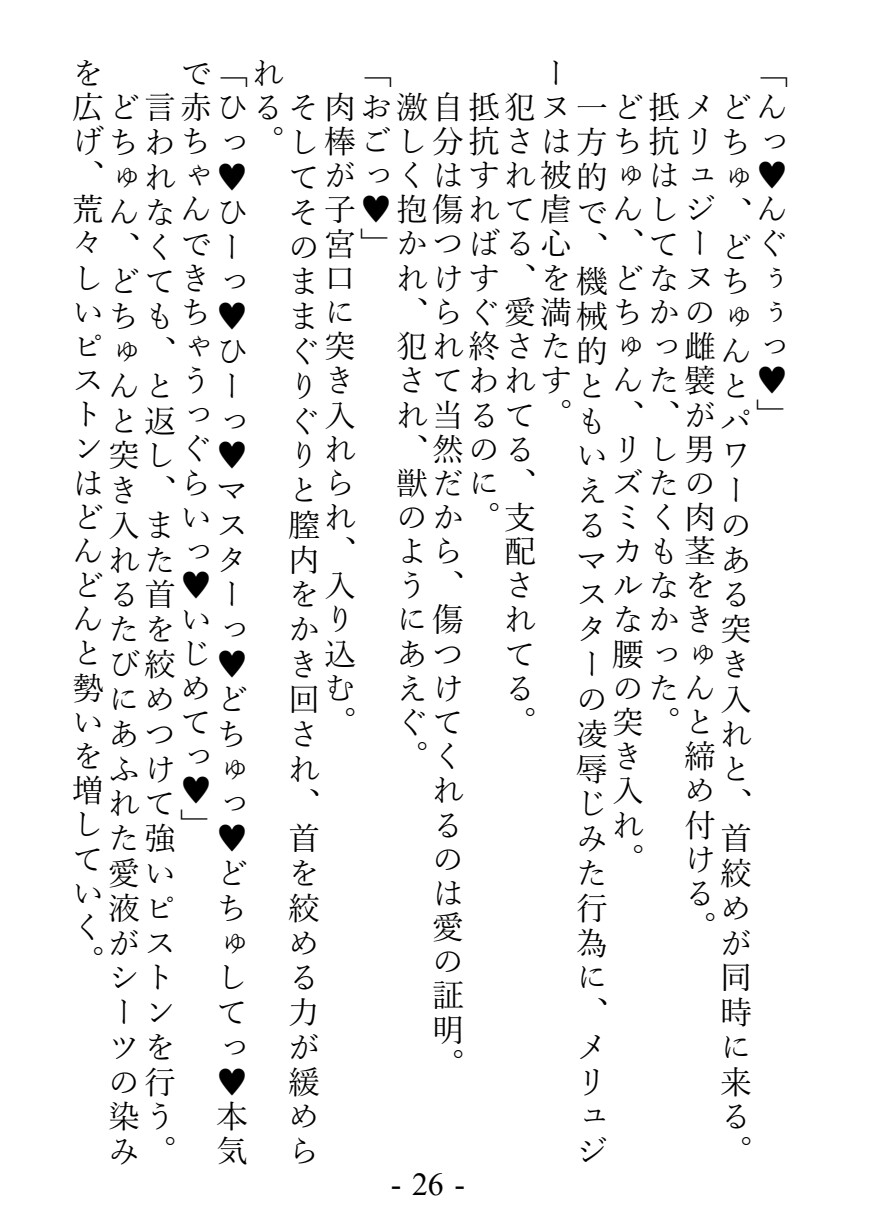 「んっ♥んぐぅぅっ♥」
どちゅ、どちゅんとパワーのある突き入れと、首絞めが同時に来る。
メリュジーヌの雌襞が男の肉茎をきゅんと締め付ける。
抵抗はしてなかった、したくもなかった。
どちゅん、どちゅん、リズミカルな腰の突き入れ。
一方的で、機械的ともいえるマスターの凌辱じみた行為に、メリュジ
ーヌは被虐心を満たす。
犯されてる、愛されてる、支配されてる。
抵抗すればすぐ終わるのに。
自分は傷つけられて当然だから、傷つけてくれるのは愛の証明。
激しく抱かれ、犯され、獣のようにあえぐ。
「おごっ♥」
肉棒が子宮口に突き入れられ、入り込む。
そしてそのままぐりぐりと膣内をかき回され、首を絞める力が緩めら
れる。
「ひっ♥ひーっ♥ひーっ♥マスターっ♥どちゅっ♥どちゅしてっ♥本気
で赤ちゃんできちゃうっぐらいっ♥いじめてっ♥」
言われなくても、と返し、また首を絞めつけて強いピストンを行う。
どちゅん、どちゅんと突き入れるたびにあふれた愛液がシーツの染み
を広げ、荒々しいピストンはどんどんと勢いを増していく。
- 26 -